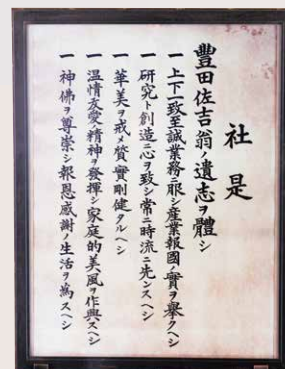 社是
豐田佐吉翁ノ遺志ヲ體シ
一 上下一致至誠業務ニ服シ産業報國ノ實ヲ擧クヘシ
一 研究ト創造ニ心ヲ致シ常ニ時流ニ先ンスヘシ
一 華美ヲ戒メ質實剛健タルヘシ
一 温情友愛精神ヲ發揮シ家庭的美風ヲ作興スヘシ
一 神佛ヲ尊崇シ報恩感謝ノ生活ヲ為スヘシ